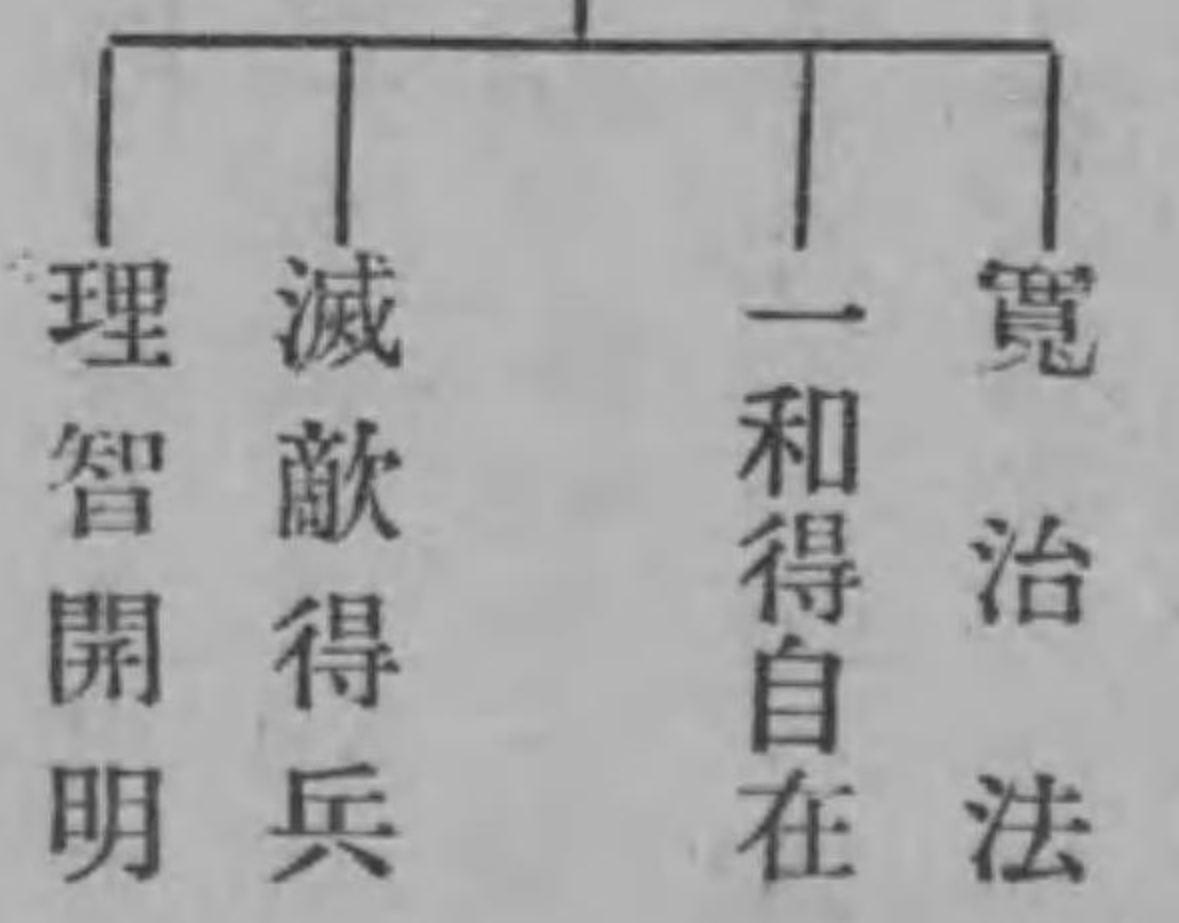 寬治法
一和得自在
滅敵得兵
理智開明